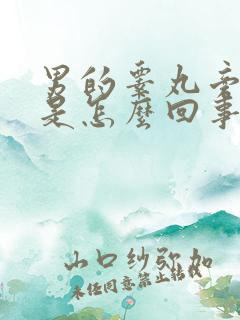 男的睾丸旁
是怎麼回事
山口纱弥加
未经同意禁止转载